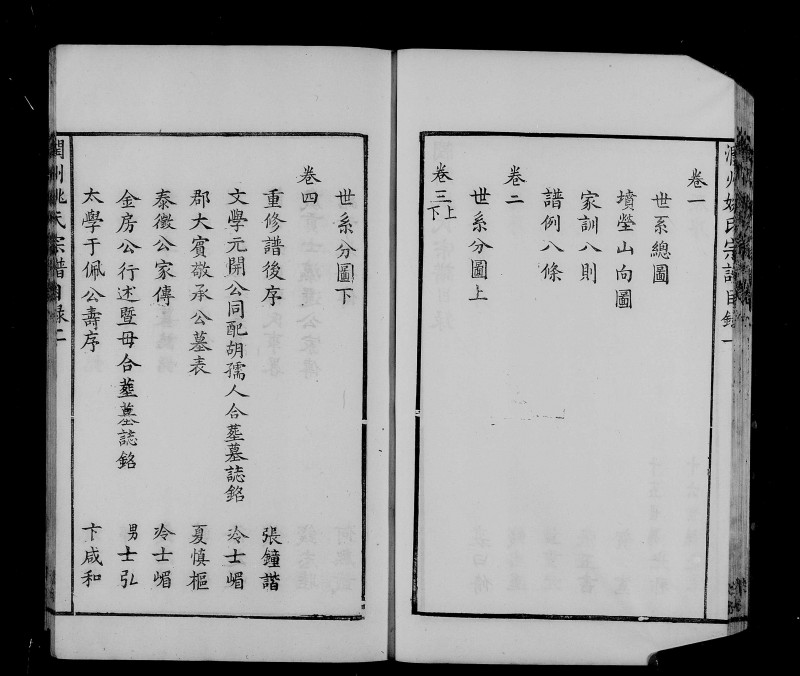 潤州姚氏宗譜目錄一
卷一
世系總圖
墳塋山向圖
家訓八則
譜例八條
卷二
世系分圖上
卷三上下
世系分圖下
卷四
重修譜後序 張鐘諧
文學元開公同配胡孺人合塟墓誌銘 冷士嵋
郡大賓敬承公墓表 夏慎樞
泰徵公家傳 冷士嵋
金房公行述暨毋合塟墓誌銘 男士弘
太學于佩公壽序 卞咸和
潤州姚氏宗譜目錄二